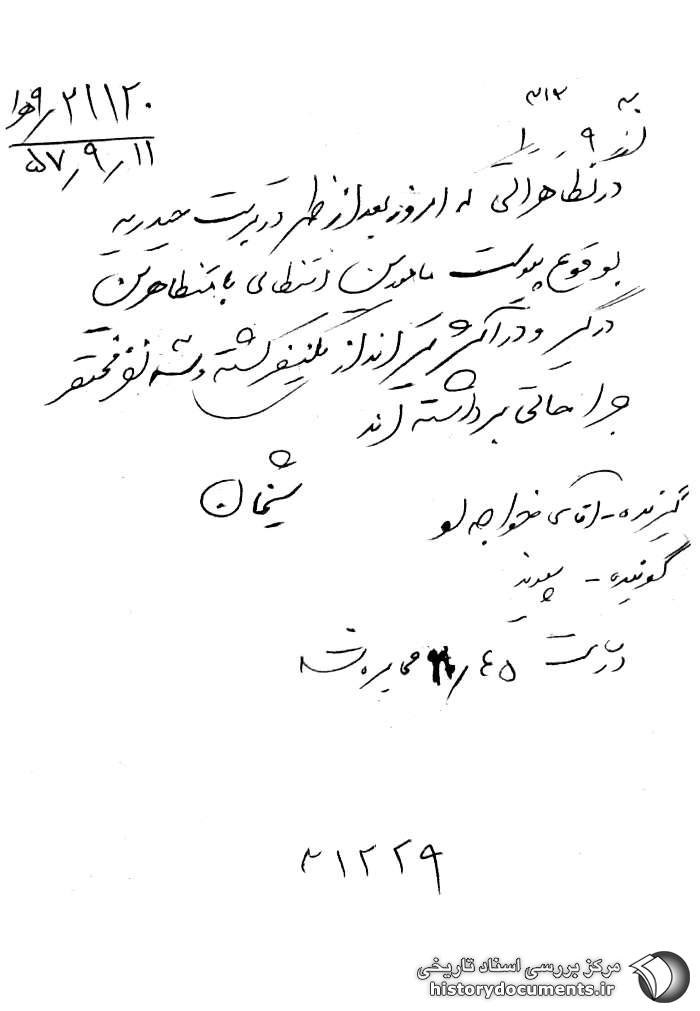 ۲۱۱۲۰/۹ﻫ۱
۵۷/۹/۱۱
به ۳۱۲
از ۹ ﻫ
در تظاهراتی که امروز بعد از ظهر در تربت حیدریه
بوقوع پیوست مامورین انتظامی با متظاهرین
درگیر و در اثر تیراندازی یکنفر کشته و سه نفر مختصر
جراحاتی برداشته اند
شیخان
گیرنده - آقای خواجه لو
گوینده - سعیدی
در ساعت ۴۵/ مخابره شد
۳۱۲۲۹
مرکز بررسی اسناد تاریخی
historydocuments.ir